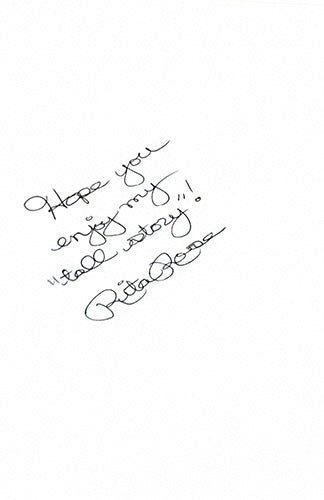 Hope you
enjoy my
"tall story"!
Rita Rose